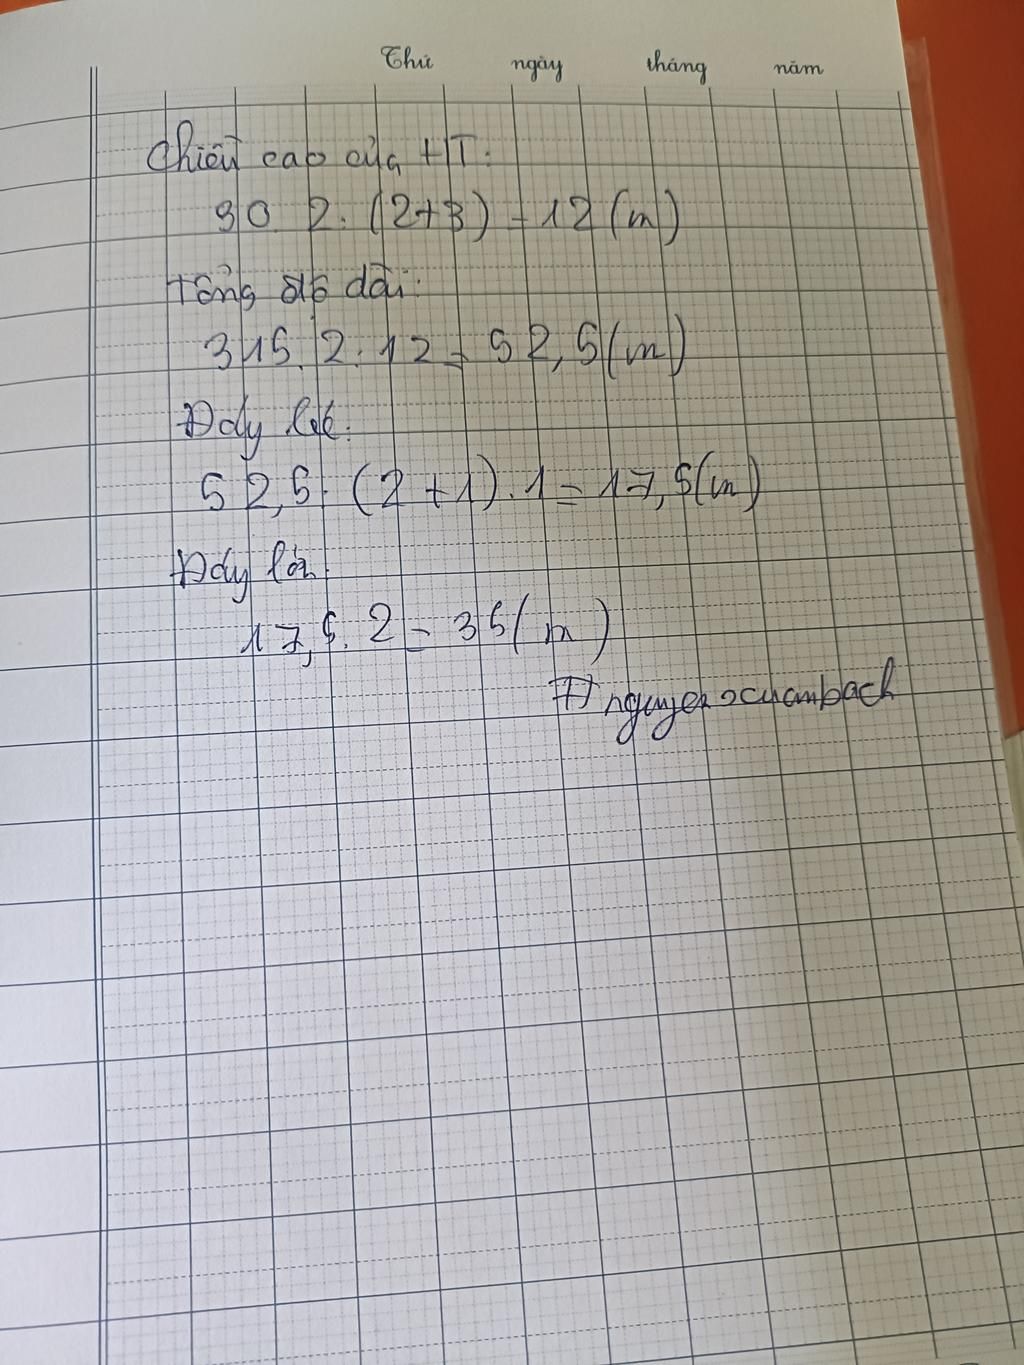 Thứ ngày tháng năm
Chiều cao của HT:
30.2:(2+3)=12(m)
Tổng độ dài:
315.2:12=52,5(m)
Đáy bé:
52,5:(2+1).1=17,5(m)
Đáy lớn:
17,5.2=35(m)
nguyenxuanbach